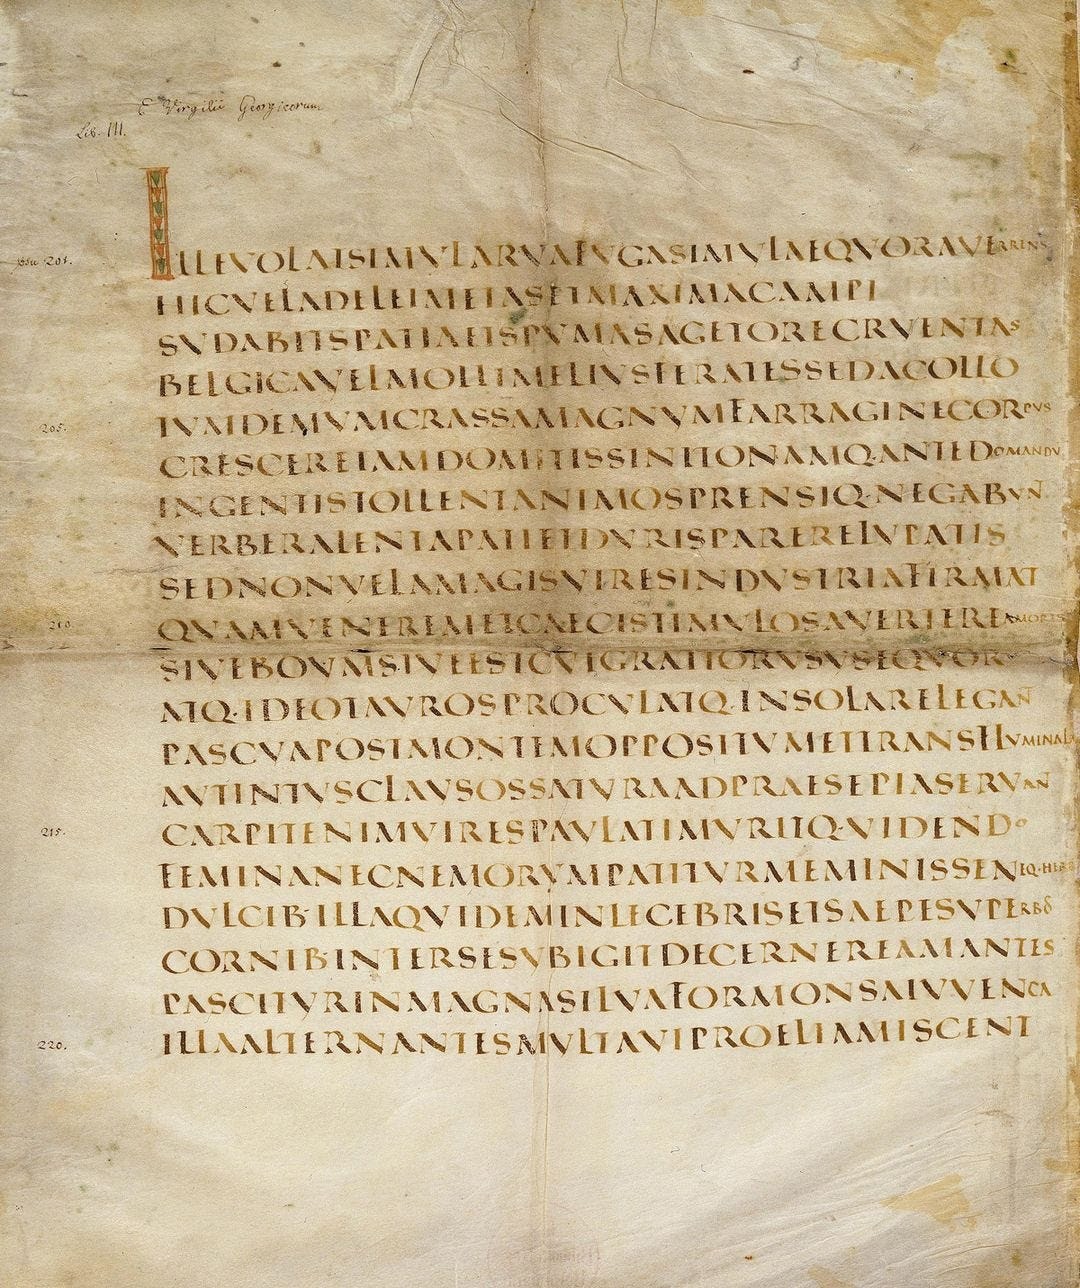 E Virgilii Georgicorum
Lib. III.
ILLEVOLATSIMVLARVAFVGASIMVLAEQVORAVERRENS
201.
HICVELADELEIMETASETMAXIMACAMPI
SVDABITSPATIAETSPVMASAGETORECRVENTAS
BELGICAVELMOLLIMELIVSFERATESSEDACOLLO
205. TVMDEMVMCRASSAMAGNVMFARRAGINECORPVS
CRESCEREIAMDOMITISSINITONAMQ·ANTEDOMANDV
INGENTISTOLLENTANIMOSPRENSIQ·NEGABVÑ
VERBERALENTAPATIETDVRISPARERELVPATIS
SEDNONVLLAMAGISVIRESINDVSTRIAFIRMAT
210. QVAMVENEREMETCAECISTIMVLOSAVERTEREAMORIS
SIVEBOVMSIVEESTCVIGRATIORVSVSEQVOR
ATQ·IDEOTAVROSPROCVLATQ·INSOLARELEGAÑ
PASCVAPOSTMONTEMOPPOSITVMETTRANSFLVMINALA
AVTINTVSCLAVSOSSATVRAADPRAESEPIASERVAÑ
215. CARPITENIMVIRESPAVLATIMVRITQ·VIDENDO
FEMINANECNEMORVMPATITVRMEMINISSENEQ·HERB
DVLCIB·ILLAQVIDEMINLECEBRISETSAEPESVPERBOS
CORNIB·INTERSESVBIGITDECERNEREAMANTES
PASCITVRINMAGNASILVAFORMONSAIVVENCA
220. ILLIALTERNANTESMVLTAVIPROELIAMISCENT